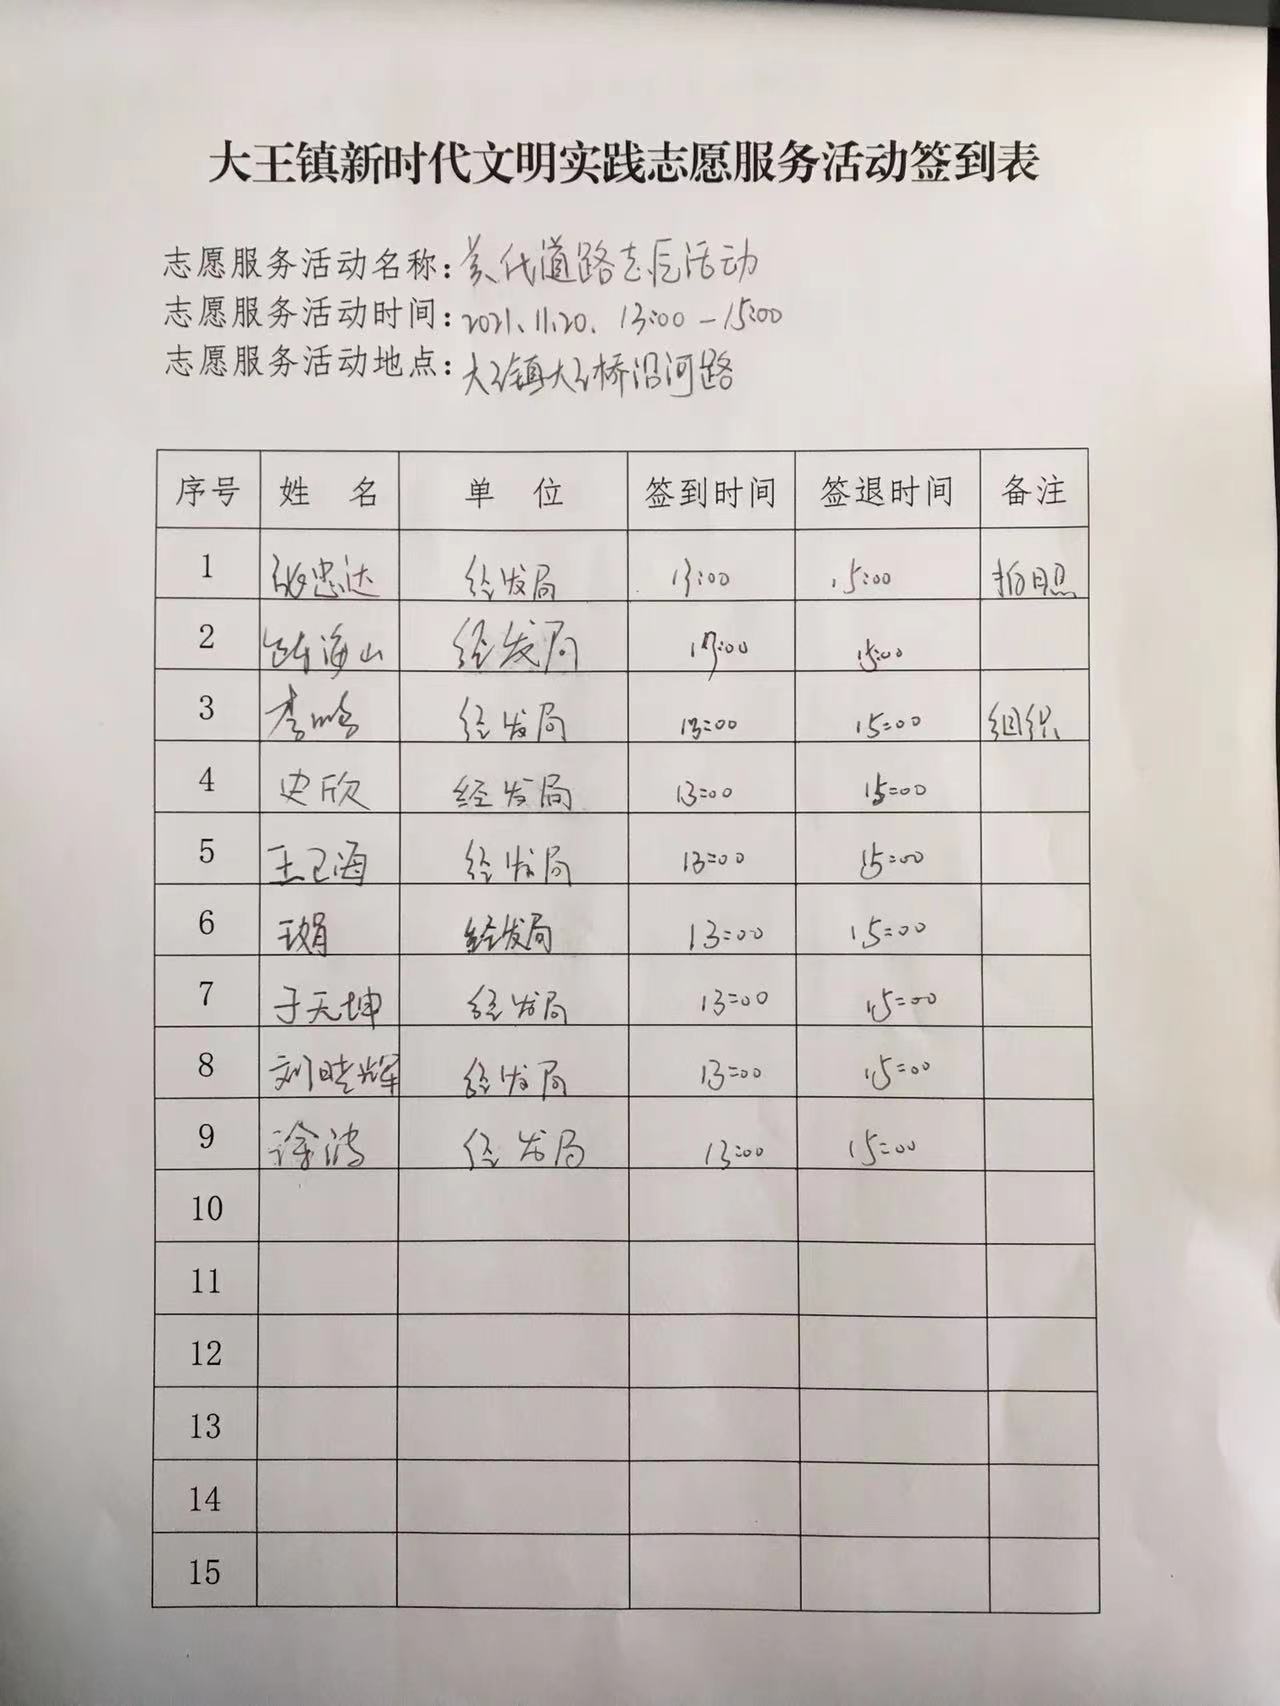 大王镇新时代文明实践志愿服务活动签到表
志愿服务活动名称：美化道路志愿活动
志愿服务活动时间：2021.11.20. 13:00-15:00
志愿服务活动地点：大王镇大王桥沿河路
序号 姓 名 单 位 签到时间 签退时间 备注
1 张忠达 经发局 13:00 15:00 拍照
2 海山 经发局 13:00 15:00
3 李鸣 经发局 13:00 15:00 组织
4 史欣 经发局 13:00 15:00
5 王卫海 经发局 13:00 15:00
6 王娟 经发局 13:00 15:00
7 于天坤 经发局 13:00 15:00
8 刘晓辉 经发局 13:00 15:00
9 徐涛 经发局 13:00 15:00
10
11
12
13
14
15